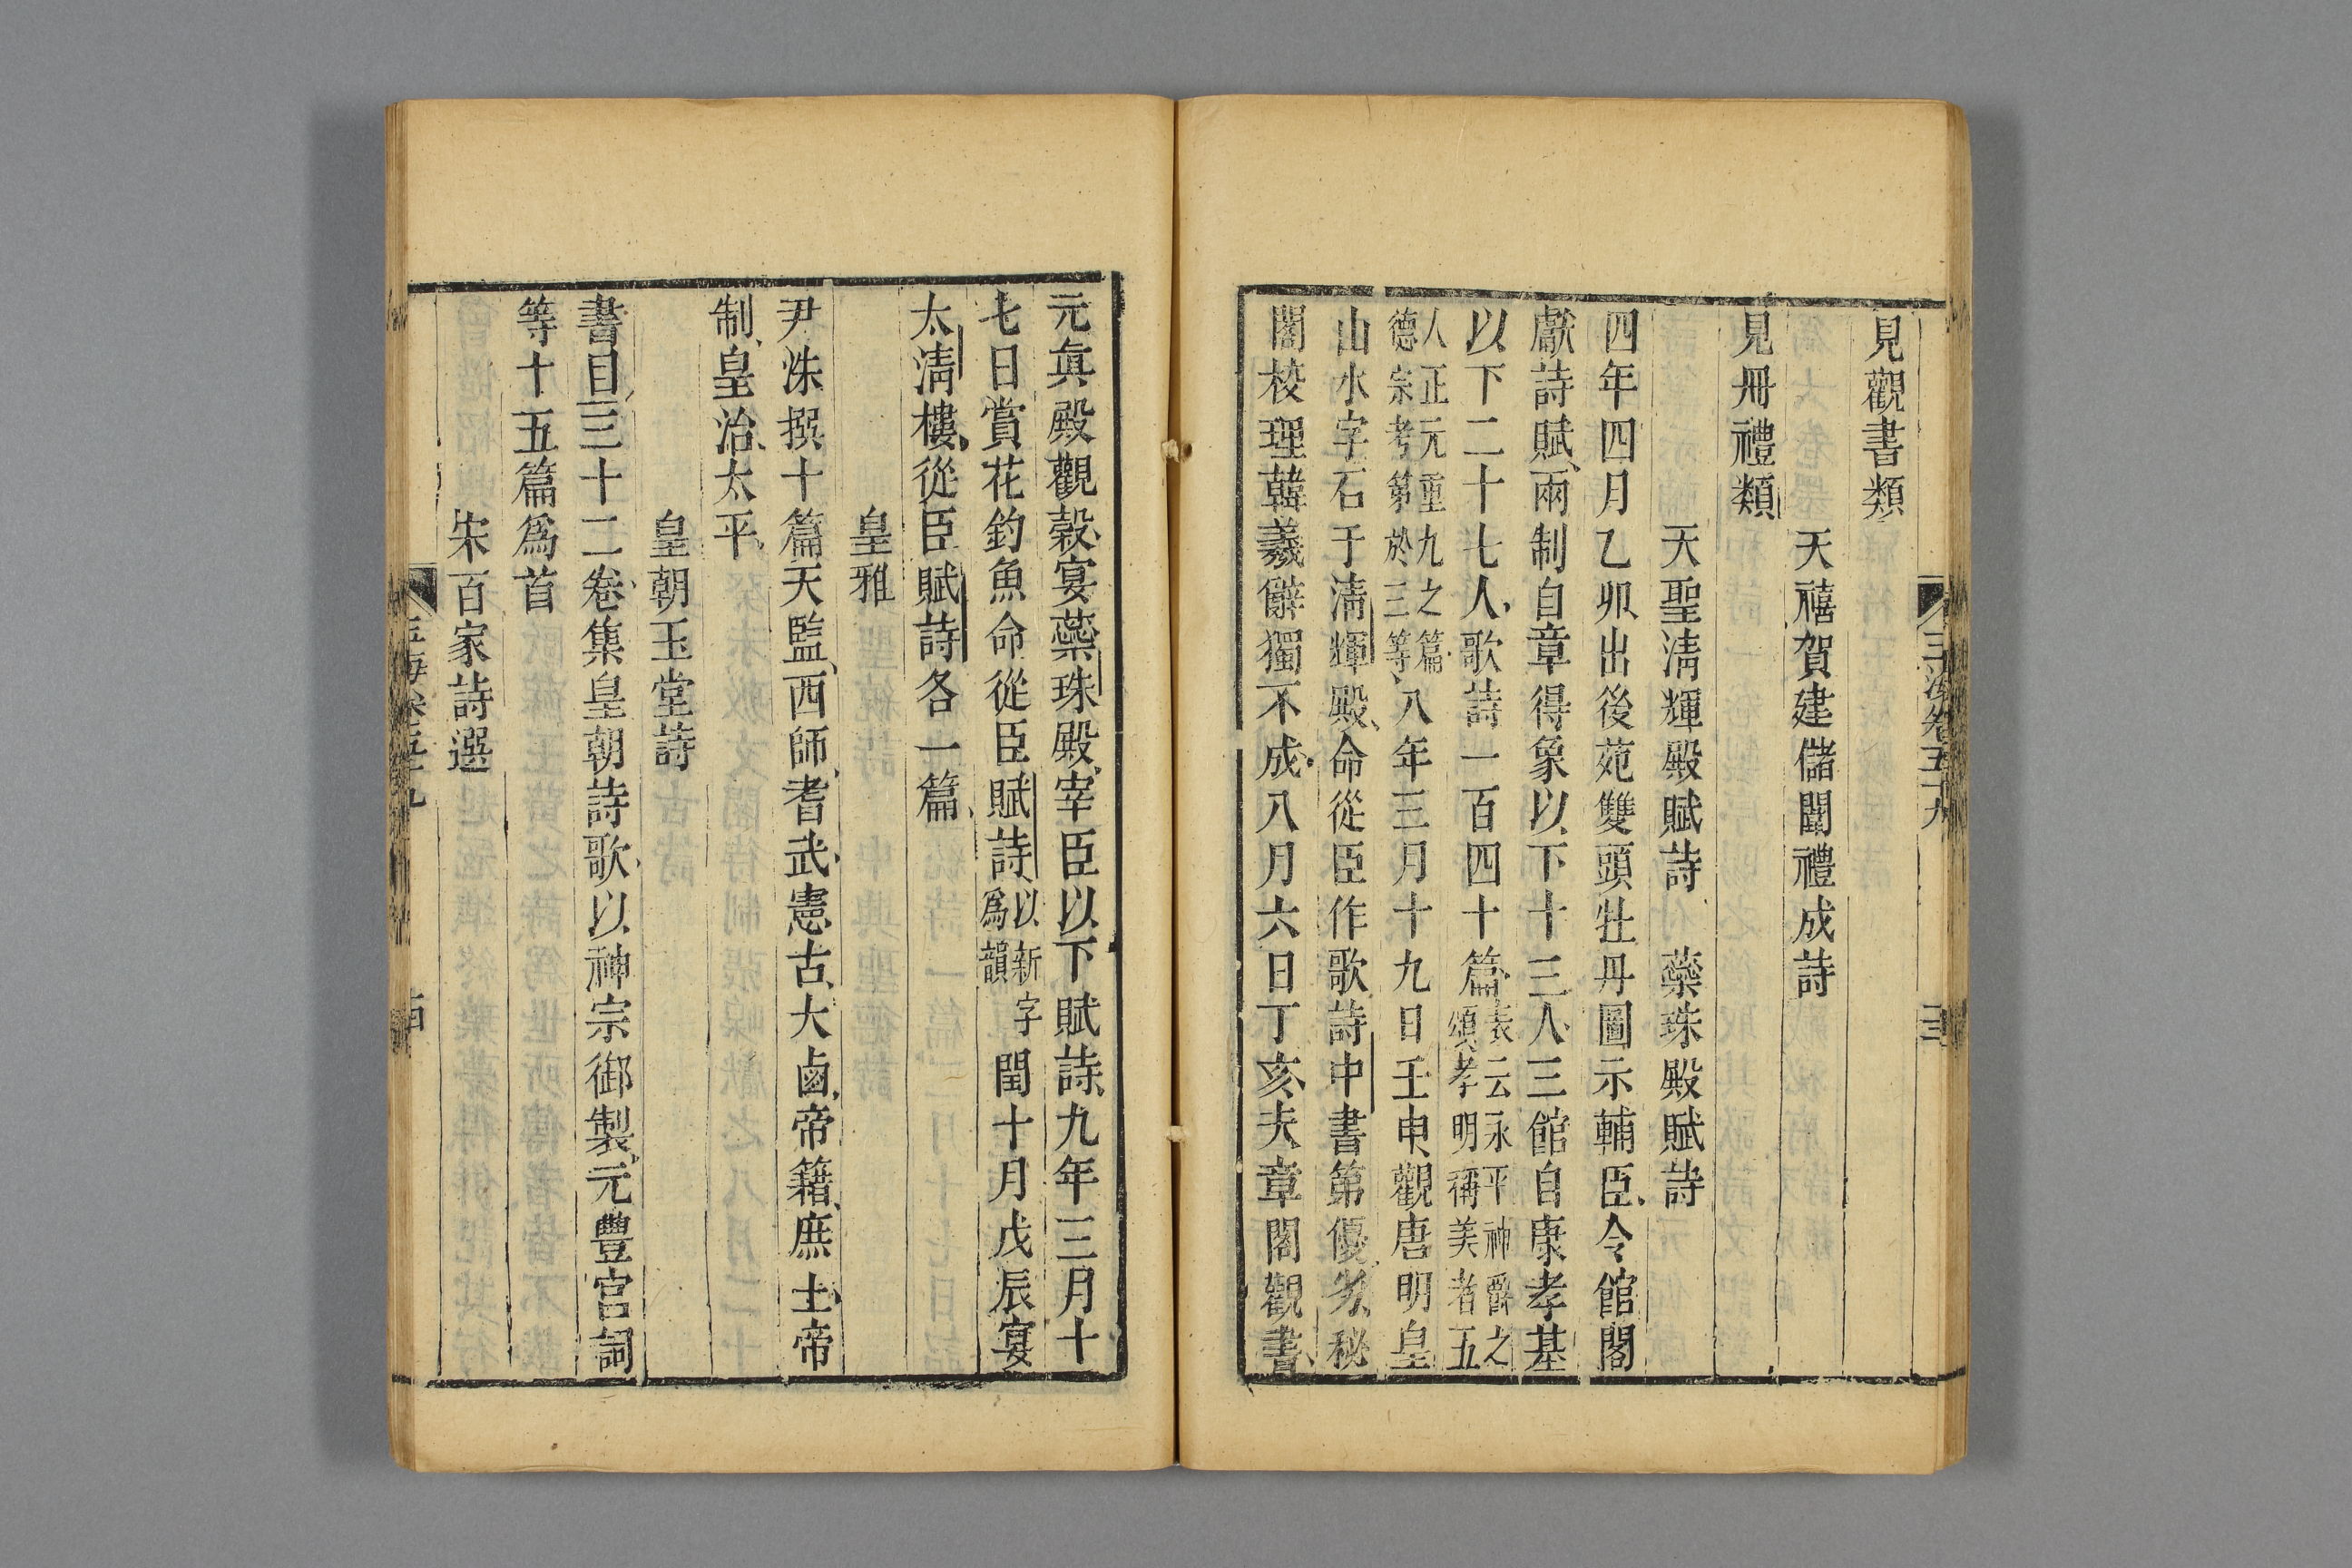 見觀書類
天禧賀建儲闈禮成詩
見冊禮類
天聖淸輝殿賦詩　蘂珠殿賦詩
四年四月乙夘出後苑雙頭牡丹圖示輔臣令館閣
獻詩賦兩制自章得象以下十三人三館自康孝基
以下二十七人歌詩一百四十篇表云永平神爵之頌孝明稱美者五
人正元重九之篇德宗考第於三等八年三月十九日壬申觀唐明皇
山水字石于淸輝殿命從臣作歌詩中書第優劣秘
閣校理韓羲辭獨不成八月六日丁亥天章閣觀書
玉海卷五十九
元眞殿觀榖宴蘂珠殿宰臣以下賦詩九年三月十
七日賞花釣魚命從臣賦詩以新字爲韻閏十月戊辰宴
太淸樓從臣賦詩各一篇
皇雅
尹洙撰十篇天監西師耆武憲古大鹵帝籍庶士帝
制皇治太平
皇朝玉堂詩
書目三十二卷集皇朝詩歌以神宗御製元豐宫詞
等十五篇爲首
宋百家詩選